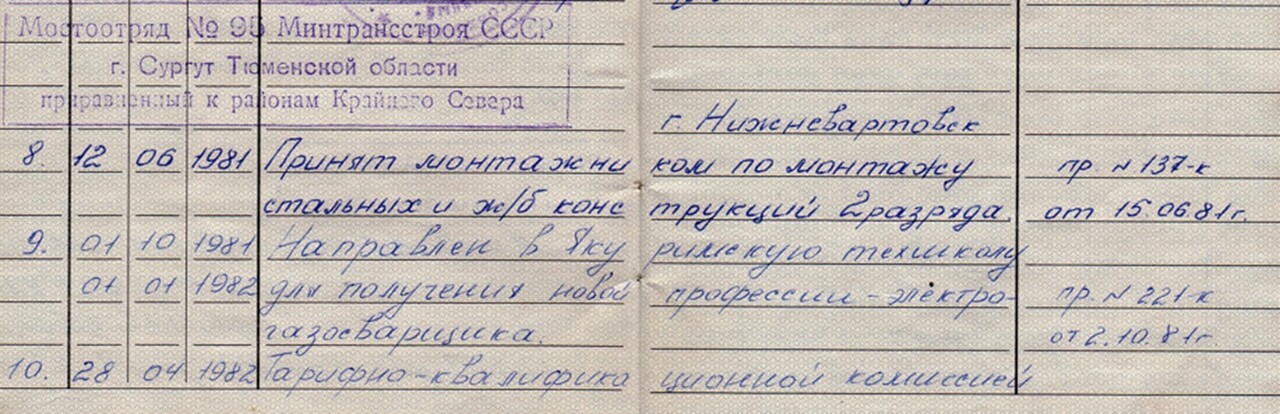 Мостоотряд № 95 Минтрансстроя СССР
г. Сургут Тюменской области
приравненный к районам Крайнего Севера
г. Нижневартовск
8. 12 06 1981 Принят монтажни ком по монтажу пр. N 137-к
стальных и ж/б конс трукций 2 разряда. от 15.06.81г.
9. 01 10 1981 Направлен в Яку римскую техшколу
01 01 1982 для получения новой профессии - электро- пр. N 221-к
газосварщика. от 2.10.81г
10. 28 04 1982 Тарифно-квалифика ционной комиссией